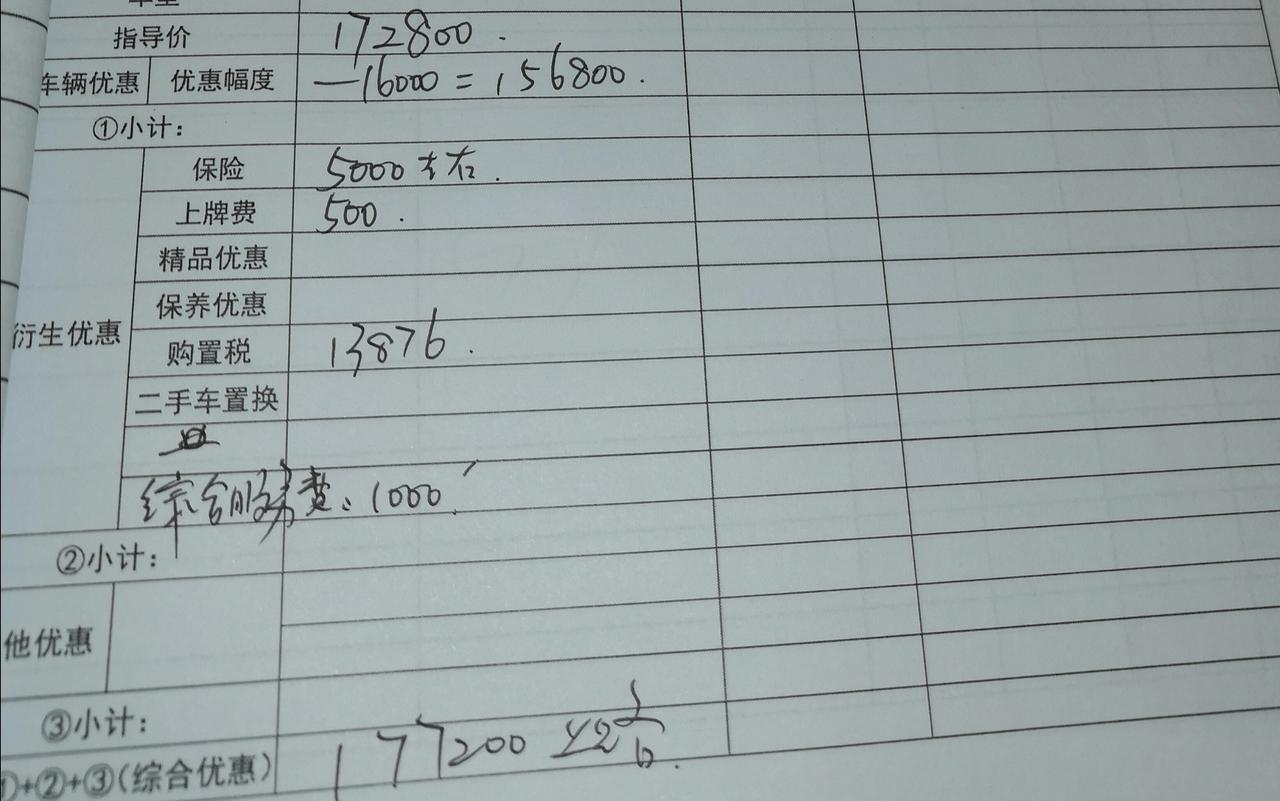 指导价 172800.
车辆优惠 优惠幅度 —16000 = 156800.
①小计:
衍生优惠
保险 5000左右.
上牌费 500.
精品优惠
保养优惠
购置税 13876.
二手车置换
综合服务费: 1000
②小计:
他优惠
③小计:
①+②+③(综合优惠) 177200